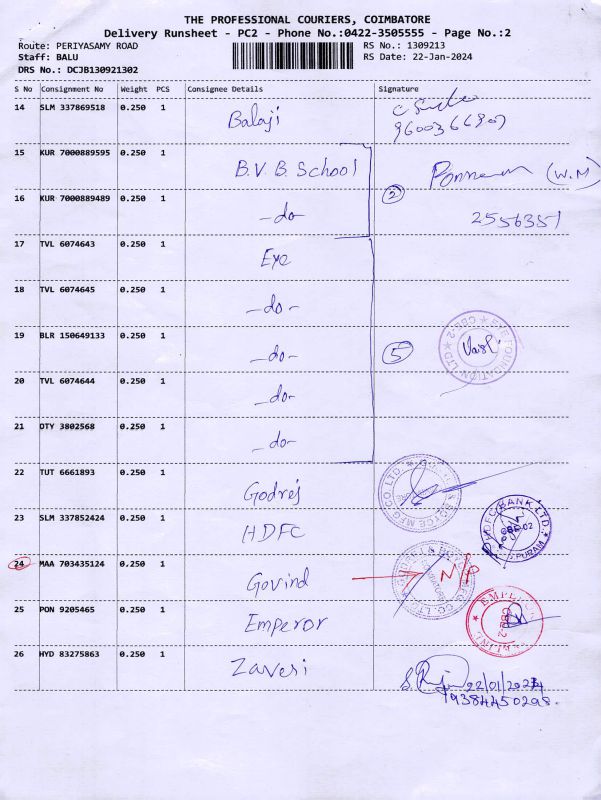 THE PROFESSIONAL COURIERS, COIMBATORE
Delivery Runsheet - PC2 - Phone No.:0422-3505555 - Page No.:2
Route: PERIYASAMY ROAD RS No.: 1309213
Staff: BALU RS Date: 22-Jan-2024
DRS No.: DCJB130921302
S No Consignment No Weight PCS Consignee Details Signature
14 SLM 337869518 0.250 1 Balaji
9600366907
15 KUR 7000889595 0.250 1 B.V.B. School (W.M)
16 KUR 7000889489 0.250 1 -do- 2 2556351
17 TVL 6074643 0.250 1 Eye
18 TVL 6074645 0.250 1 -do-
19 BLR 150649133 0.250 1 -do- 5
20 TVL 6074644 0.250 1 -do-
21 DTY 3802568 0.250 1 -do-
22 TUT 6661893 0.250 1 Godrej
23 SLM 337852424 0.250 1 HDFC HDFC BANK LTD
24 MAA 703435124 0.250 1 Govind N/P
25 PON 9205465 0.250 1 Emperor
26 HYD 83275863 0.250 1 Zaveri
22/01/2024
9384450298